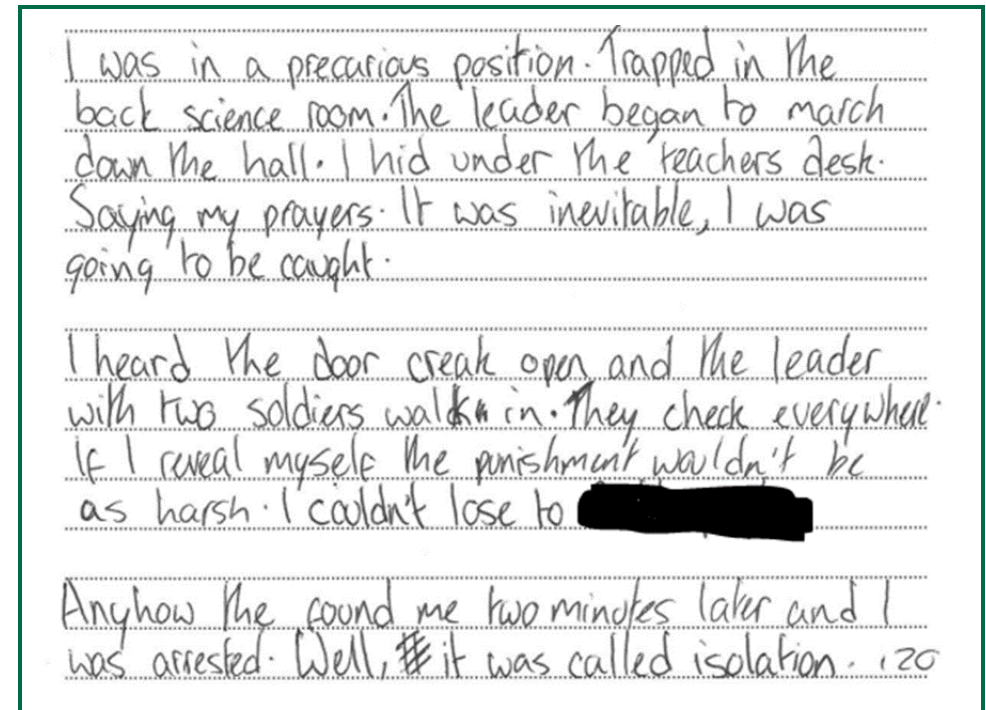 I was in a precarious position. Trapped in the
back science room. The leader began to march
down the hall. I hid under the teachers desk.
Saying my prayers. It was inevitable, I was
going to be caught.
I heard the door creak open and the leader
with two soldiers walk in. They check everywhere.
If I reveal myself the punishment wouldn't be
as harsh. I couldn't lose to
Anyhow the found me two minutes later and I
was arrested. Well, it was called isolation. 120